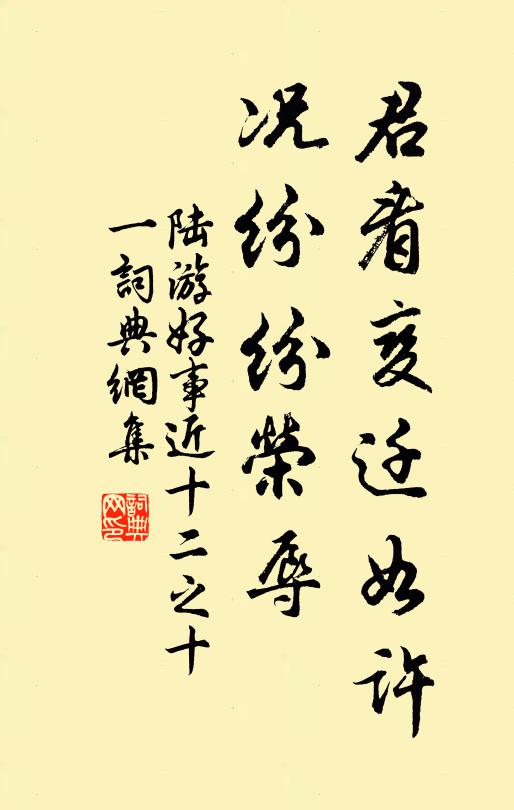 君看变迁如许
况纷纷榮辱
陆游好事近十二之十
一詞典網集
詞典網印